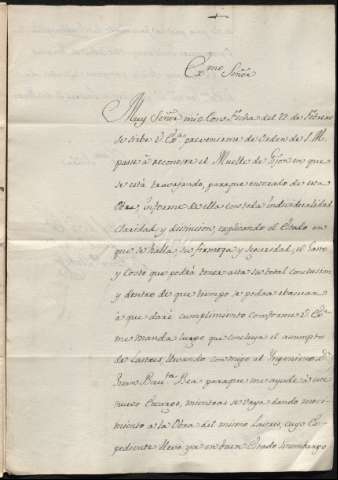 Exmo Señor
Muy Señor mio Con fecha del 22 de Febrero
se sirbe V. Exa. prevenirme de Orden de S. M.
pase à reconocer el Muelle de Gijon en que
se està travajando, para que enterado de esta
Obra, informe de ella con toda individualidad
Claridad, y distincion, explicando el Estado en
que se halla, su firmeza y seguridad, el gasto
y Costo que podrà tener asta su total conclusion
y dentro de que tiempo se podra ebacuar
à que darè cumplimiento conforme V. Exa.
me manda luego que concluya el asumpto
de Lastres, llevando conmigo al Ingeniero Dn.
Juan Bauta. Bea para que me ayude à este
nuevo Encargo, mientras se vaya dando movi-
miento à la Obra del mismo Lastres, cuyo Ex-
pediente llevo ya en buen Estado